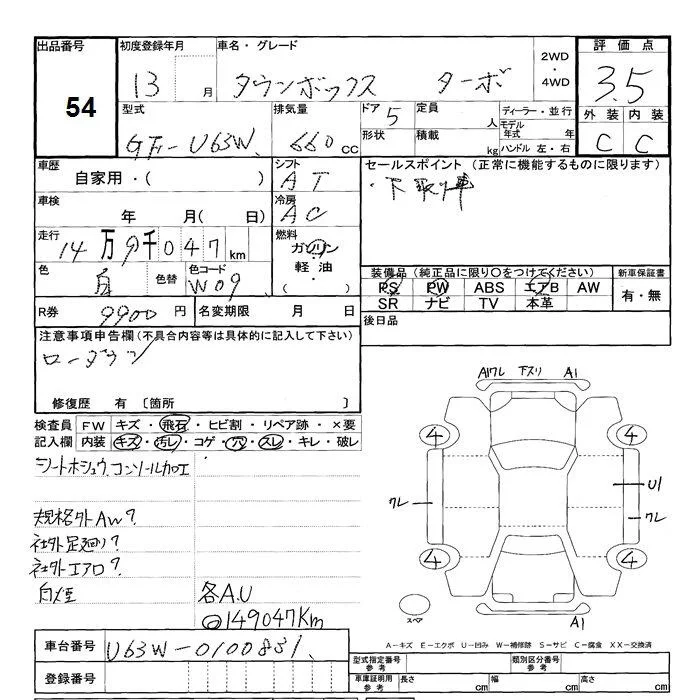 出品番号
54
初度登録年月
13 月
車名・グレード
タウンボックス ターボ
2WD
・
4WD
評価点
3.5
型式
GF-U63W
排気量
660 cc
ドア 5
形状
定員 人
積載 kg
ディーラー・並行
モデル年式 年
ハンドル 左・右
外装 内装
C C
車歴
自家用・( )
シフト
AT
セールスポイント (正常に機能するものに限ります)
・下取り車
車検
年 月( 日)
冷房
AC
走行
14万9千047km
燃料
ガソリン
軽油
・( )
色
白
色替
色コード
W09
装備品 (純正品に限り○をつけてください)
新車保証書
PS PW ABS エアB AW
SR ナビ TV 本革
有・無
R券 9900 円
名変期限 月 日
後日品
注意事項申告欄 (不具合内容等は具体的に記入して下さい)
ローダウン
修復歴 有 〔箇所
検査員
記入欄
FW キズ・飛石・ヒビ割・リペア跡・×要
内装 キズ・汚レ・コゲ・穴・スレ・キレ・破レ
シートホシュウ、コンソール加工
規格外AW?
社外足廻り?
社外エアロ?
白煙
各A.U
@149047Km
A1ワレ 下スリ A1
4 4
ワレ
U1
ワレ
4 4
スペア
A1
A-キズ E-エクボ U-凹み W-補修跡 S-サビ C-腐食 XX-交換済
車台番号
U63W-0100831
登録番号
型式指定番号
参考
類別区分番号
参考
車庫証明用
参考
長さ cm
幅 cm
高さ cm